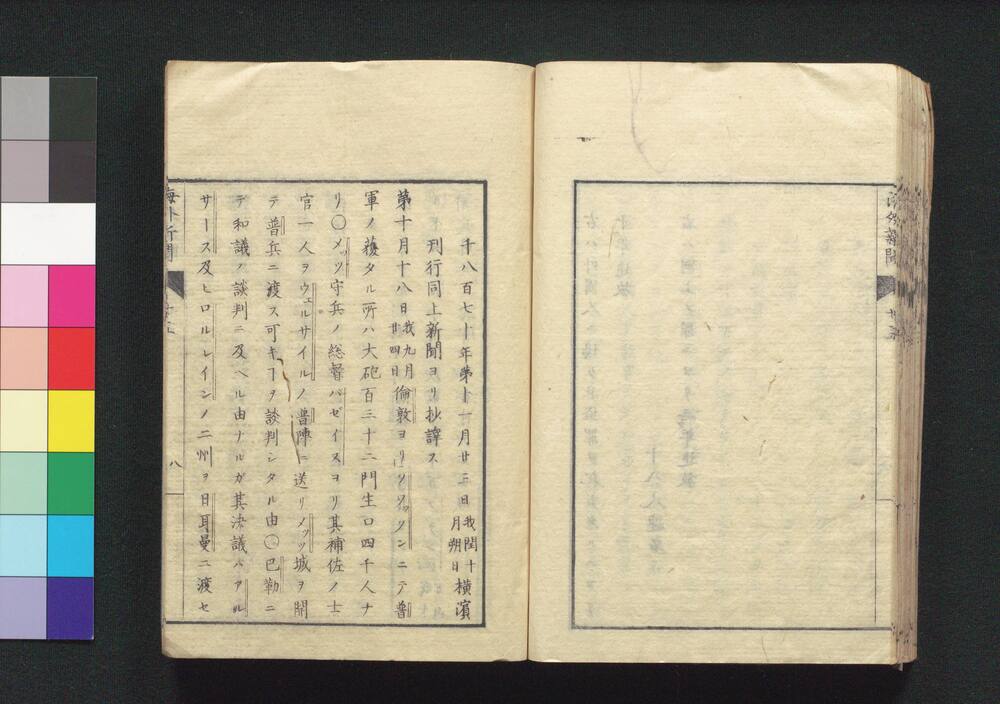 千八百七十年第十一月廿三日我閏十月朔日横濱
刊行同上新聞ヨリ抄譯ス
第十月十八日我九月廿四日倫敦ヨリソソッタンニテ普
軍ノ獲タル所ハ大砲百三十二門生口四千人ナ
リ〇メッツ守兵ノ総督バゼイスヨリ其補佐ノ士
官一人ヲウェルサイルノ普陣ニ送リメッツ城ヲ開
テ普兵ニ渡ス可キヿヲ談判シタル由〇巴勒ニ
テ和議ノ談判ニ及ヘル由ナルガ其決議ハアル
サース及ヒロルレインノ二州ヲ日耳曼ニ渡セ
海外新聞
八